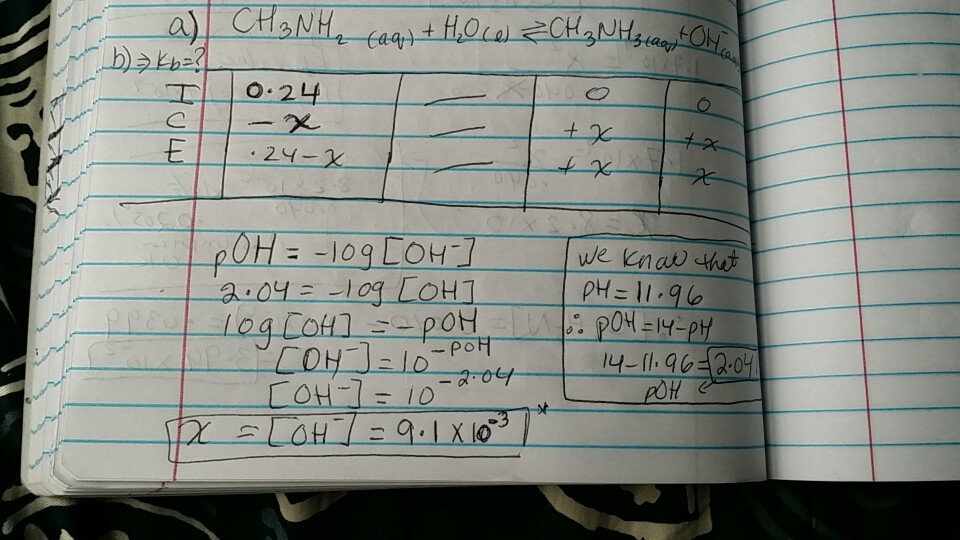 a) CH₃NH₂ (aq) + H₂O(l) ⇌ CH₃NH₃(aq) + OH⁻(aq)
b) ⇒ Kb=?
I 0.24 — 0 0
C - x — + x + x
E .24-x — + x x
pOH = -log [OH⁻]
2.04 = -log [OH]
log [OH] = - pOH
[OH⁻] = 10^-pOH
[OH⁻] = 10^-2.04
x = [OH⁻] = 9.1 x 10^-3 *
we know that
pH = 11.96
∴ pOH = 14-pH
14-11.96=2.04
pOH